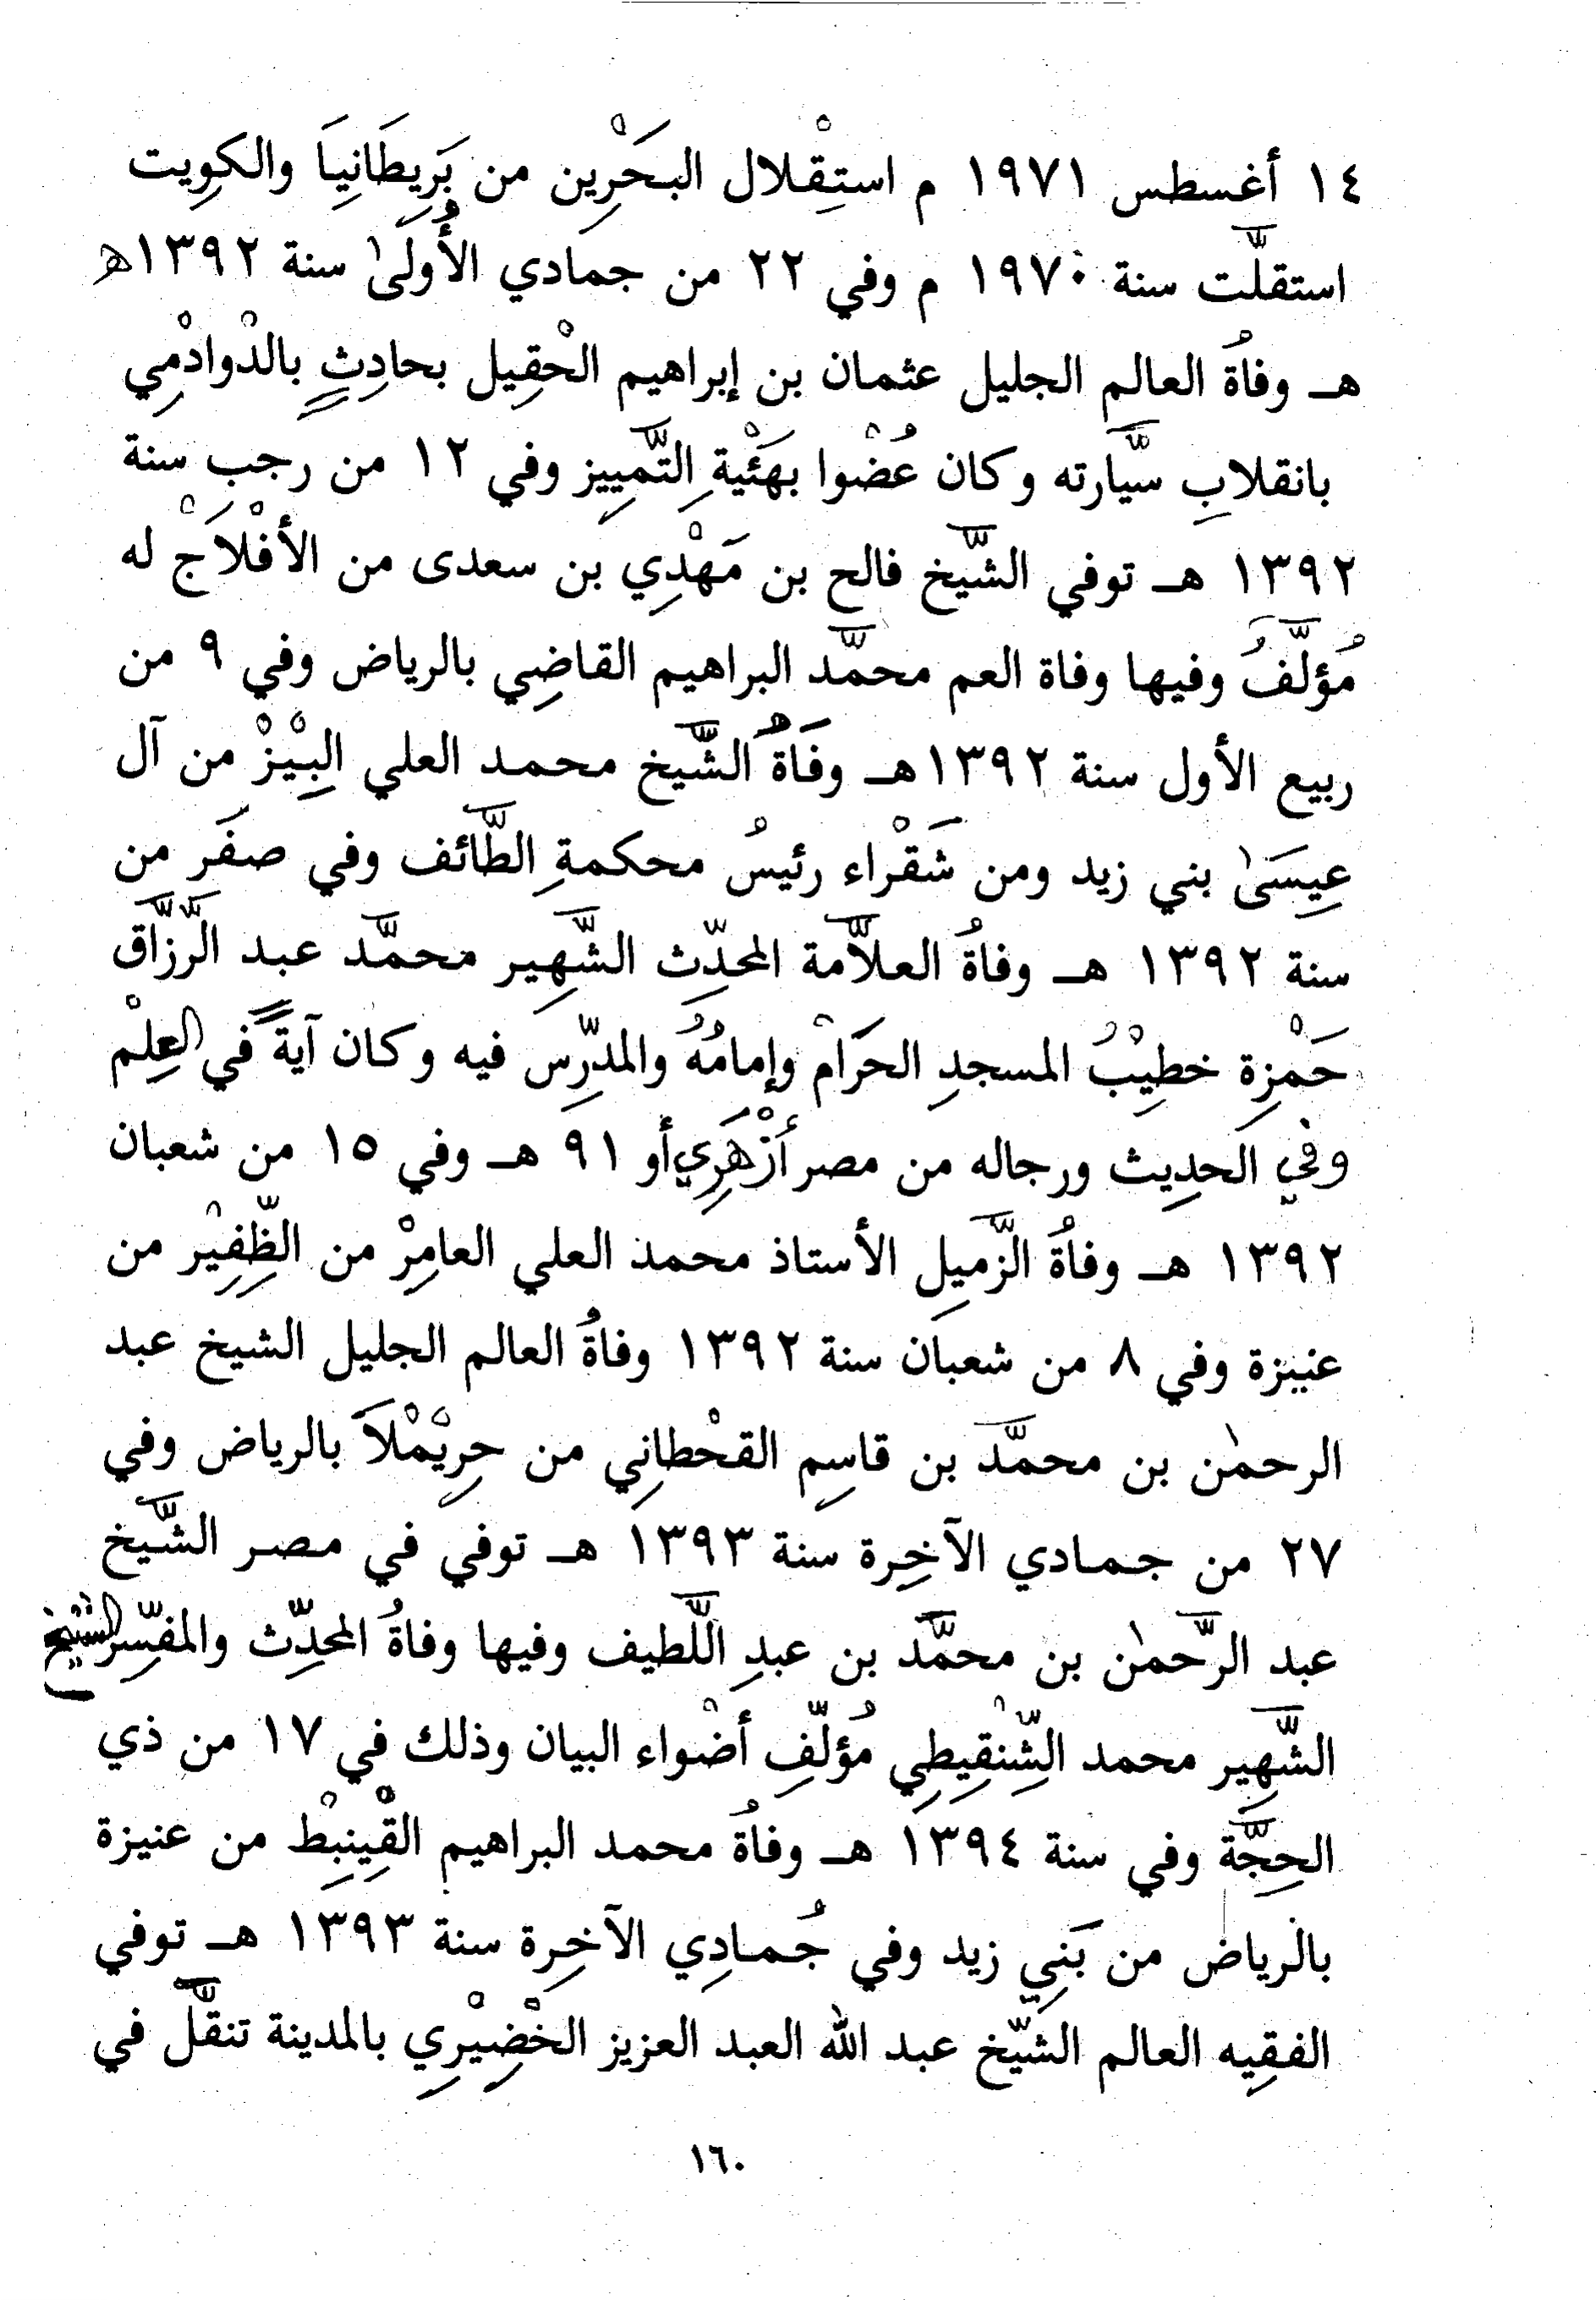 ١٤ أغسطس ١٩٧١ م استِقْلال البَحْرِين من بَرِيطَانِيَا والكوِيت
استقلَّت سنة ١٩٧٠ م وفي ٢٢ من جمادي الأُولَىٰ سنة ١٣٩٢هـ
هـ وفاةُ العالم الجليل عثمان بن إبراهيم الحْقِيل بحادِثٍ بالدْوادْمِي
بانقلابِ سيَّارته وكان عُضْوا بهَيْئةِ التَّمِييز وفي ١٢ من رجب سنة
١٣٩٢ هـ توفي الشَّيخ فالح بن مَهْدِي بن سعدى من الأفْلَاجْ له
مُؤلَّفُ وفيها وفاة العم محمَّد البراهيم القاضِي بالرياض وفي ٩ من
ربيع الأول سنة ١٣٩٢هـ وفَاةُ الشَّيخ محمد العلي البِيْزْ من آل
عِيسَىٰ بني زيد ومن شَقْراء رئيسُ محكمةِ الطَّائف وفي صفَر من
سنة ١٣٩٢ هـ وفاةُ العلاَّمة المحدِّث الشَّهِير محمَّد عبد الرَّزَّاق
حَمْزِة خطِيْبُ المسجدِ الحرَامْ وإمامُهُ والمدرِّس فيه وكان آيةً في العِلْم
وفي الحدِيث ورجاله من مصر أزْهَرِي أو ٩١ هـ وفي ١٥ من شعبان
١٣٩٢ هـ وفاةُ الزَّمِيل الأستاذ محمد العلي العامِرْ من الظِّفِيْر من
عنيزة وفي ٨ من شعبان سنة ١٣٩٢ وفاةُ العالم الجليل الشيخ عبد
الرحمٰن بن محمَّد بن قاسِم القحْطانِي من حرِيْمْلاَ بالرياض وفي
٢٧ من جمادي الآخِرة سنة ١٣٩٣ هـ توفي في مصر الشَّيخ
عبد الرَّحمٰن بن محمَّد بن عبدِ اللَّطيف وفيها وفاةُ المحدِّث والمفسِّر الشَّيْخ
الشَّهِير محمد الشِّنْقِيطِي مُؤلِّفِ أضْواء البيان وذلك في ١٧ من ذي
الحِجَّة وفي سنة ١٣٩٤ هـ وفاةُ محمد البراهيم القْينِبِطْ من عنيزة
بالرياض من بَنِي زيد وفي جُمادِي الآخِرة سنة ١٣٩٣ هـ توفي
الفقِيه العالم الشَّيخ عبد الله العبد العزيز الخْضِيْرِي بالمدينة تنقَّل في
١٦٠